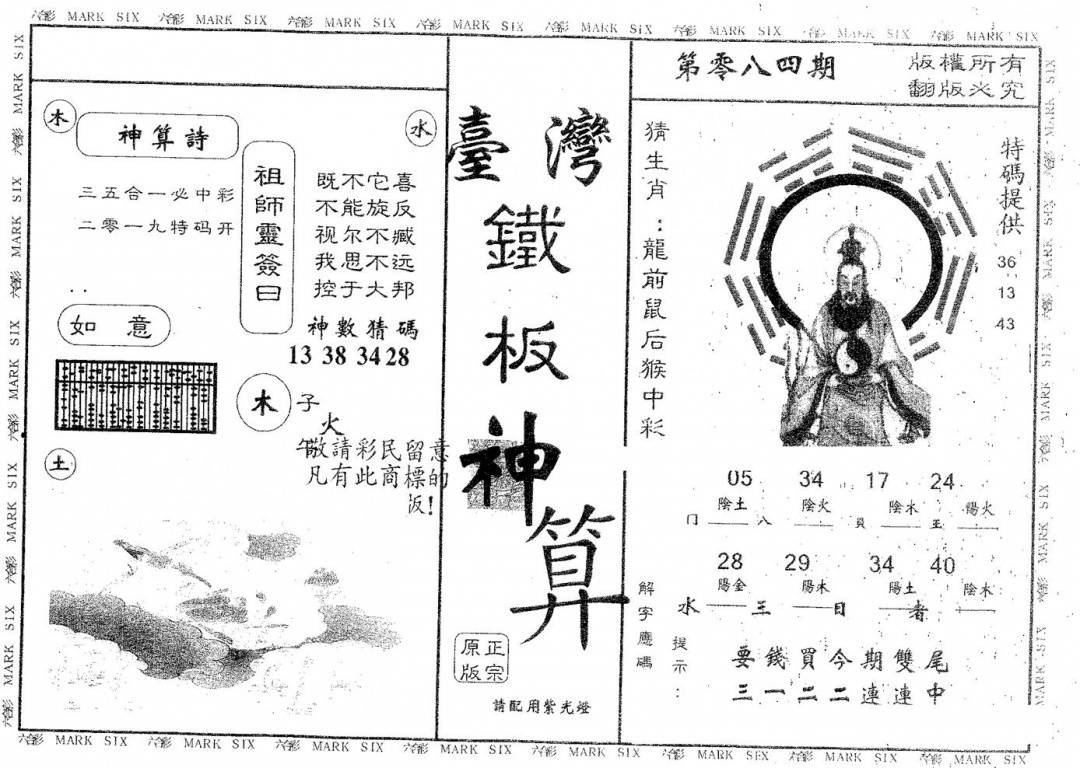 六合彩 MARK SIX 六合彩 MARK SIX 六合彩 MARK SIX 六合彩 MARK SIX 六合彩 MARK SIX 六合彩 MARK SIX 六合彩 MARK SIX 六合彩 MARK SIX
第零八四期
版權所有
翻版必究
木
神算詩
三五合一必中彩
二零一九特码开
水
祖師靈簽曰
既不它喜
不能旋反
视尔不臧
我思不远
控于大邦
神數猜碼
13 38 34 28
如意
木
子
火
敬請彩民留意
凡有此商標的
版!
土
臺灣
鐵
板
神
算
正宗
原版
請配用紫光燈
猜生肖：龍前鼠后猴中彩
特碼提供
36
13
43
05 34 17 24
陰土 陰火 陰木 陽火
門 八 員 王
28 29 34 40
陽金 陽木 陽土 陰木
水 王 日 者
解字應碼
提示：
要錢買今期雙尾
三一二二連連中
六合彩 MARK SIX 六合彩 MARK SIX 六合彩 MARK SIX 六合彩 MARK SIX 六合彩 MARK SIX 六合彩 MARK SIX 六合彩 MARK SIX 六合彩 MARK SIX